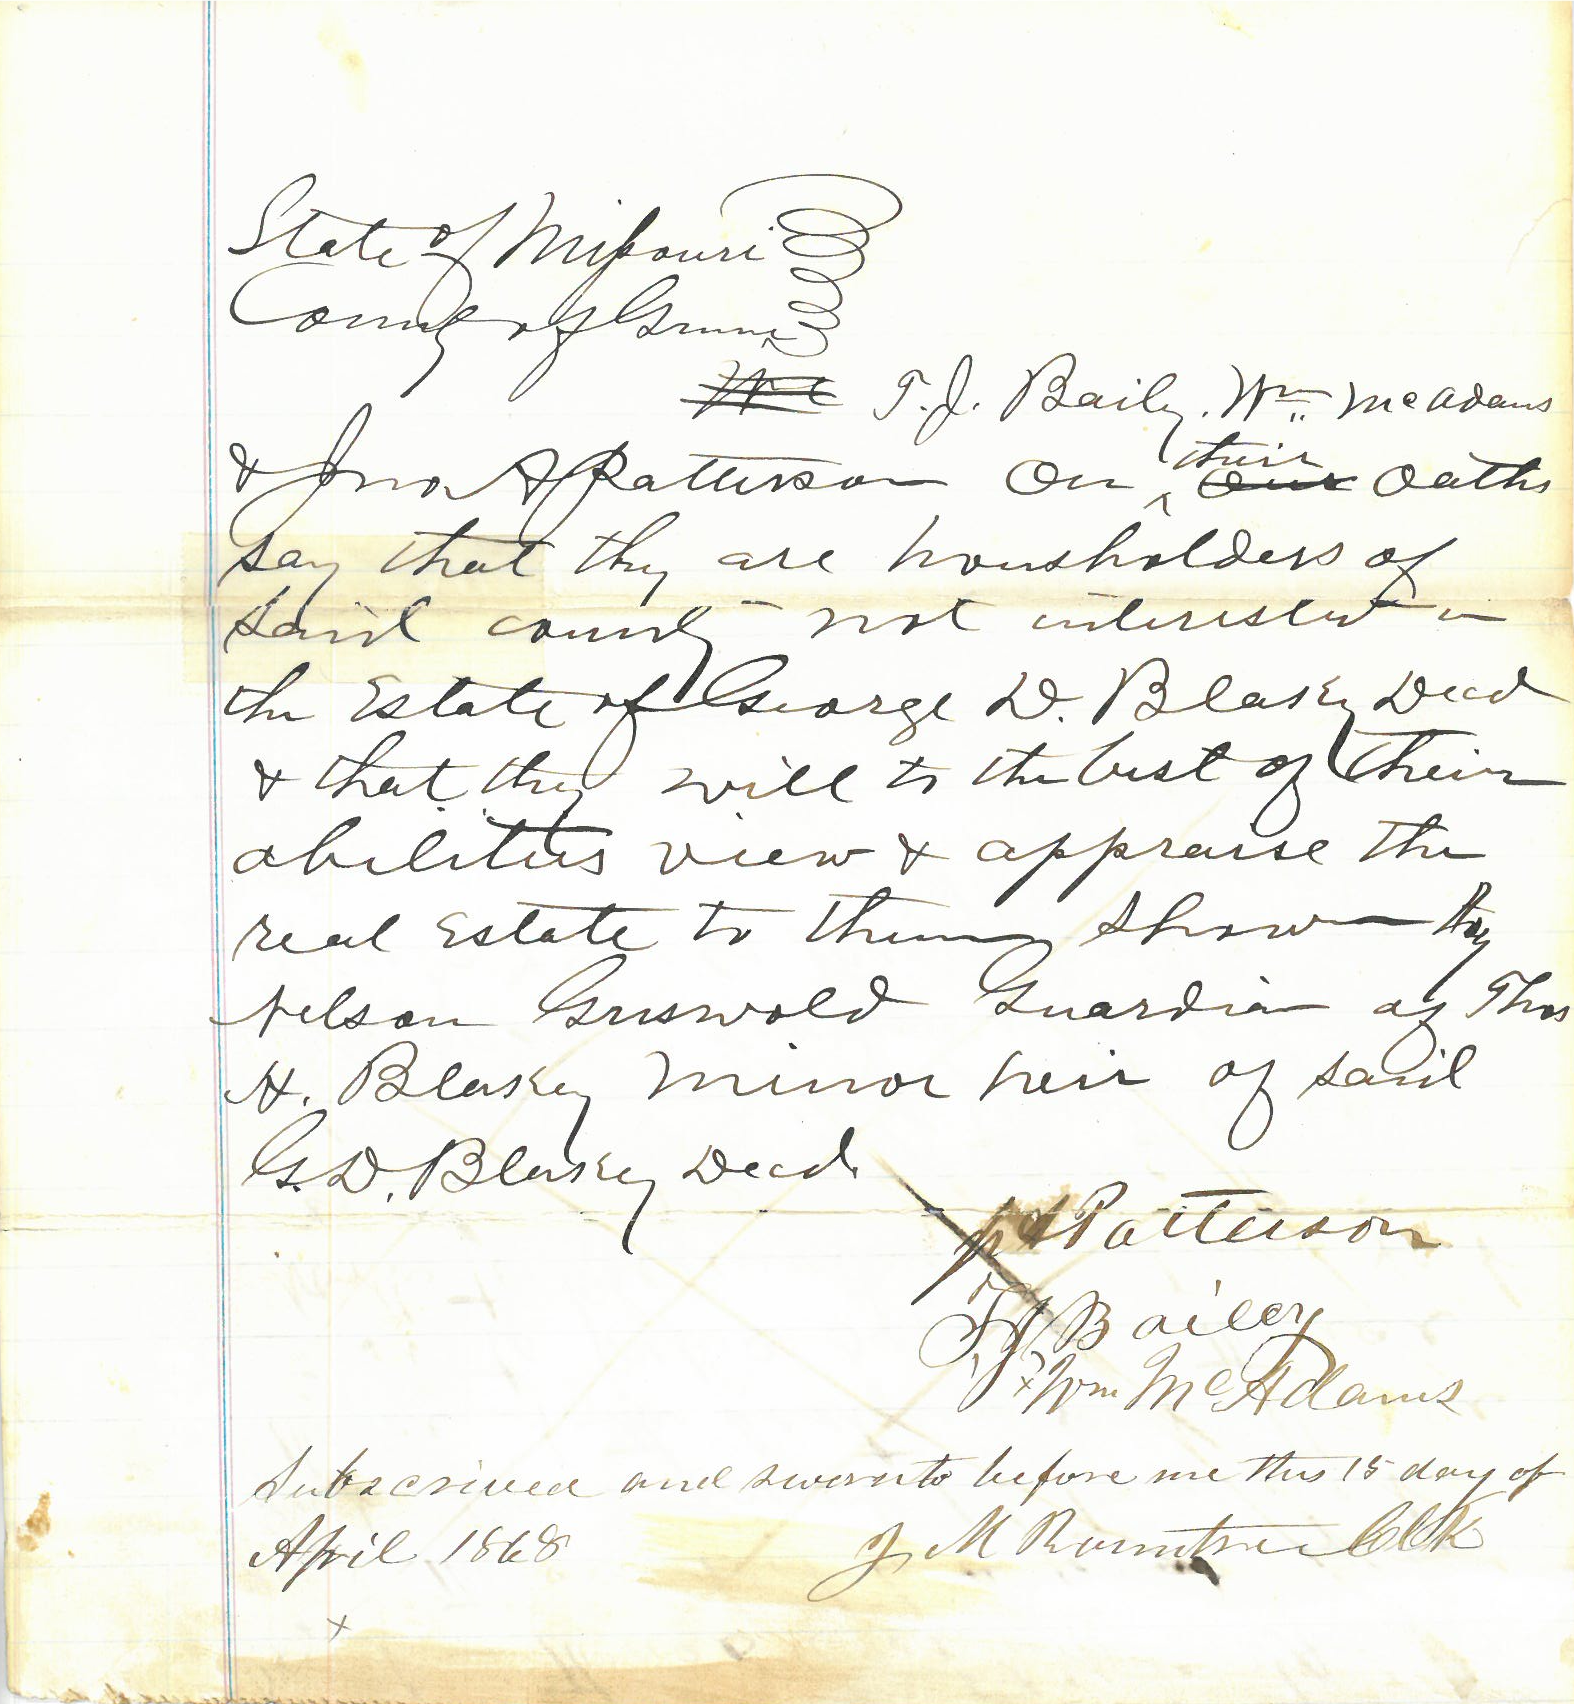 State of Missouri
County of Greene
We T. J. Baily, Wm McAdams
& Jno A Patterson on their our oaths
say that they are housholders of
said county not interested in
the Estate of George D. Blakey Decd
& that they will to the best of their
abilities view & appraise the
real Estate to them shown by
Nelson Griswold Guardian of Thos
H. Blakey minor heir of said
G. D. Blakey Decd.
J A Patterson
T. J. Bailey
x Wm McAdams
Subscrived and sworn to before me this 15 day of
April 1868 J M Rountree Clk
x